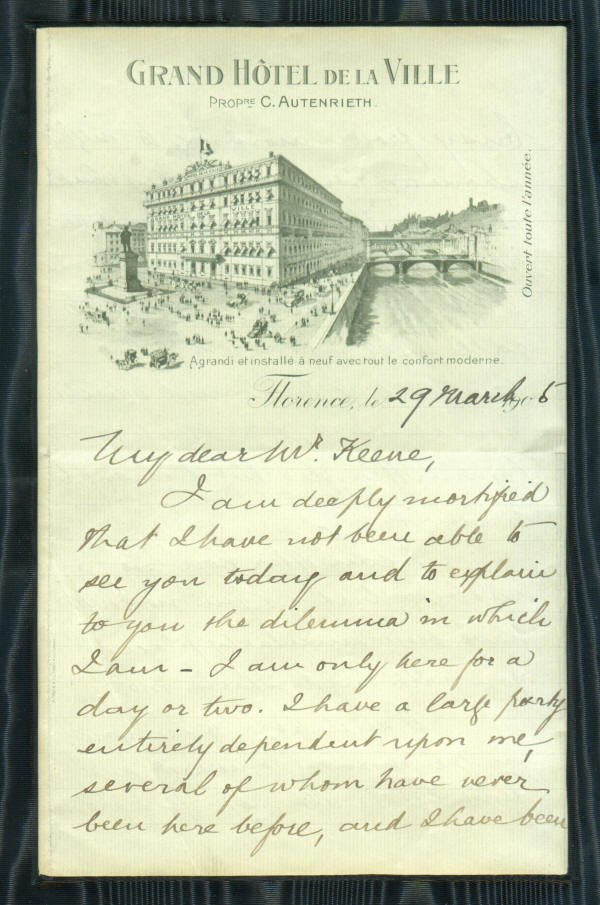 GRAND HÔTEL DE LA VILLE
PROPRE C. AUTENRIETH.
Ouvert toute l'année.
Agrandi et installé à neuf avec tout le confort moderne.
Florence, le 29 March 190 5
My dear Mr. Keene,
I am deeply mortified
that I have not been able to
see you today and to explain
to you the dilemma in which
I am - I am only here for a
day or two. I have a large party
entirely dependent upon me,
several of whom have never
been here before, and I have been